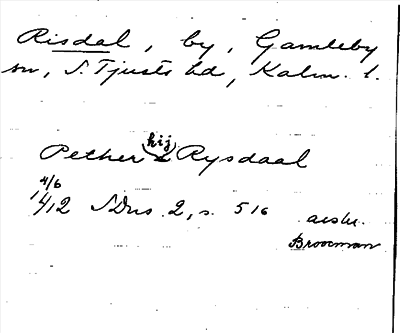 Risdal, by, Gamleby
sn, S. Tjusts hd, Kalm. l.
Pether (hij) Rysdaal
4/6
1412 SDns 2, s. 516 avskr.
Brooman